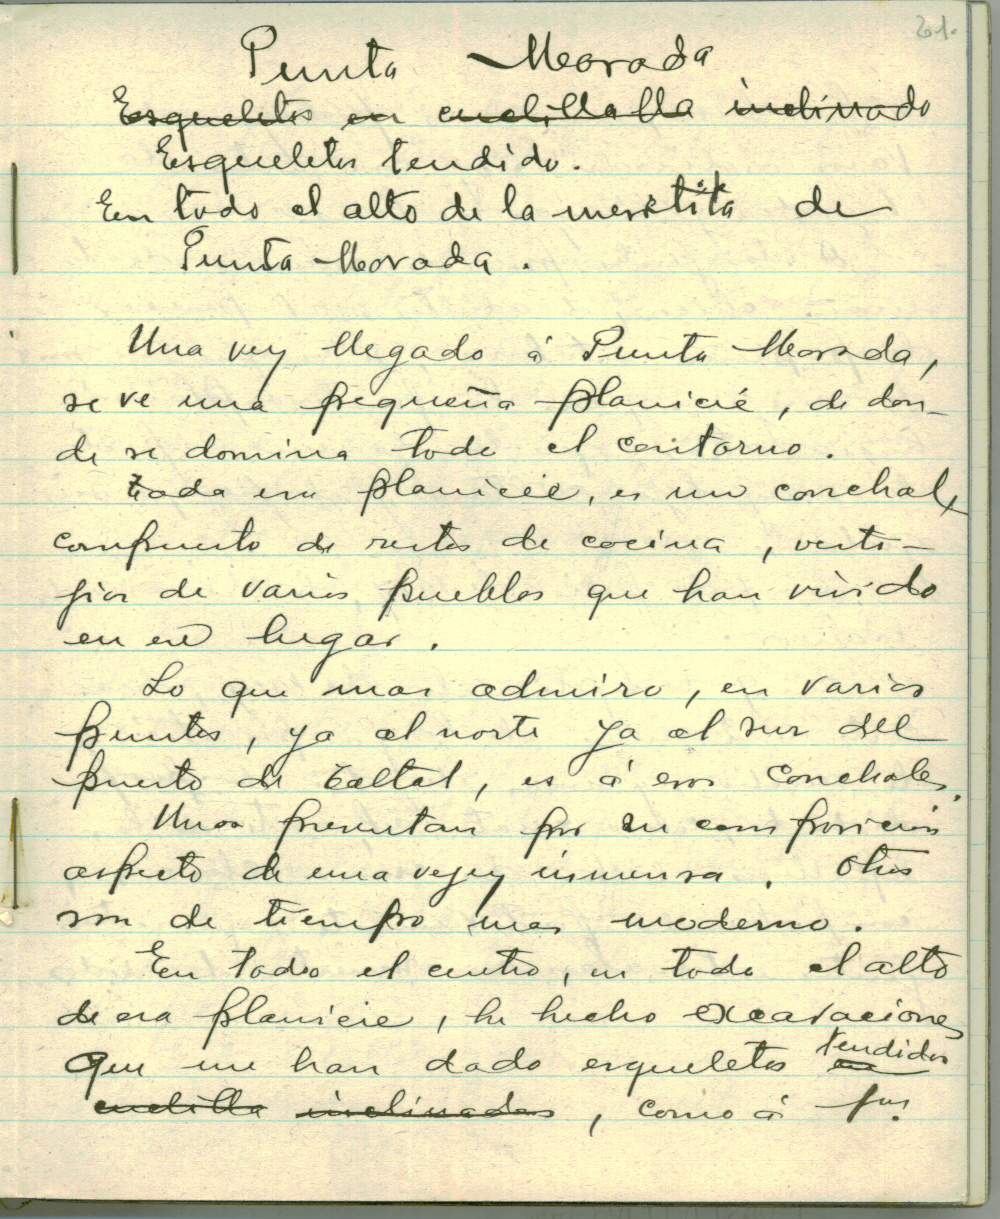 21.
Punta Morada
Esqueletos en cuclilla lla inclinado
Esqueletos tendido.
En todo el alto de la mesetita de
Punta Morada.
Una vez llegado á Punta Morada,
se ve una pequeña planicié, de don-
de se domina todo el contorno.
Toda esa planicie, es un conchal,
compuesto de restos de cocina, vesti-
jios de varios pueblos que han vivido
en ese lugar.
Lo que mas admiro, en varios
puntos, ya al norte ya al sur del
puerto de Taltal, es á esos conchales.
Unos presentan por su composicion
aspecto de una vejez inmensa. Otros
son de tiempo mas moderno.
En todo el centro, en todo el alto
de esa planicie, he hecho excavaciones
que me han dado esqueletos en tendidos
cuclilla inclinados, como á